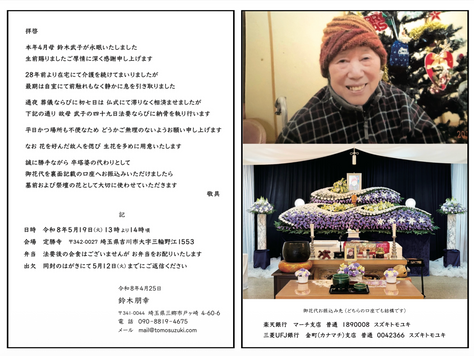 拝啓
本年4月母 鈴木武子が永眠いたしました
生前賜りましたご厚情に深く感謝申し上げます
28年前より在宅にて介護を続けてまいりましたが
最期は自室にて前触れもなく静かに息を引き取りました
通夜 葬儀ならびに初七日は 仏式にて滞りなく相済ませましたが
下記の通り 故母 武子の四十九日法要ならびに納骨を執り行います
平日かつ場所も不便なため どうかご無理のないようお願い申し上げます
なお 花を好んだ故人を偲び 生花を多めに用意いたします
誠に勝手ながら 卒塔婆の代わりとして
御花代を裏面記載の口座へお振込みいただけましたら
墓前および祭壇の花として大切に使わせていただきます
敬具
記
日時 令和8年5月19日(火)13時より14時頃
会場 定勝寺 〒342-0027 埼玉県吉川市大字三輪野江1553
弁当 法要後の会食はございませんが お弁当をお配りいたします
出欠 同封のはがきにて5月12日(火)までにご返信ください
令和8年4月25日
鈴木朋幸
〒341-0044 埼玉県三郷市戸ヶ崎 4-60-6
電 話 090-8819-4675
メール mail@tomosuzuki.com
御花代お振込み先(どちらの口座でも結構です)
楽天銀行 マーチ支店 普通 1890008 スズキトモユキ
三菱UFJ銀行 金町(カナマチ)支店 普通 0042366 スズキトモユキ